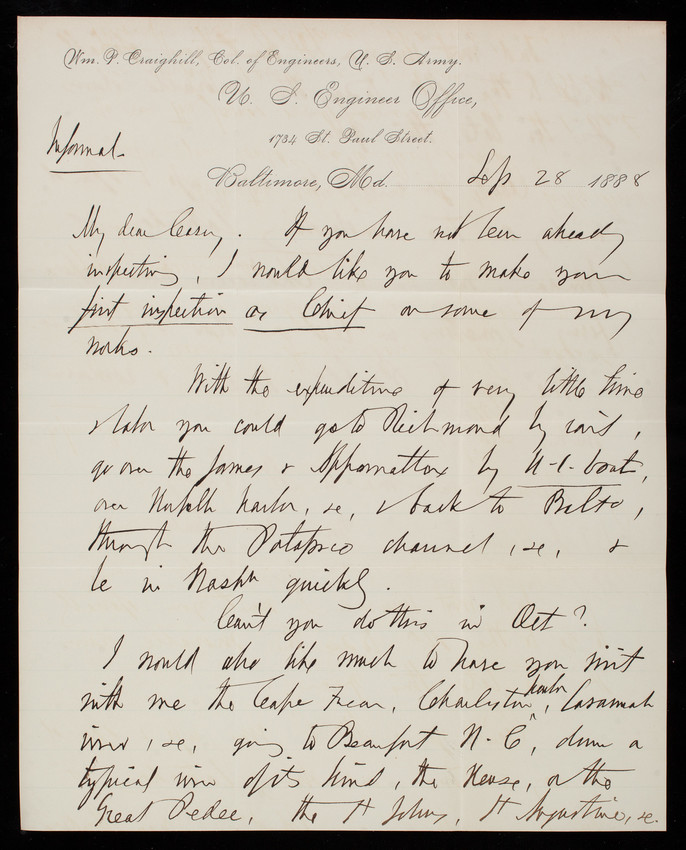 Wm. P. Craighill, Col. of Engineers, U. S. Army.
U. S. Engineer Office,
1734 St. Paul Street.
Informal
Baltimore, Md. Sep 28 1888
My dear Casey. If you have not been already
inspecting, I would like you to make your
first inspection as Chief on some of my
works.
With the expenditure of very little time
& labor you could go to Richmond by rail,
go over the James & Appomattox by U-S-boat,
over Norfolk harbor, &c, & back to Balto,
through the Patapsco channel, &c, &
be in Washn quickly.
Can't you do this in Oct?
I would also like much to have you visit
with me the Cape Fear, Charleston harbor, Savannah
river, &c, going to Beaufort N. C, down a
typical river of its kind, the Neuse, or the
Great Pedee, the St Johns, St Augustine, &c.